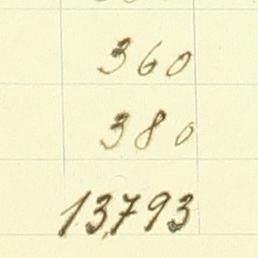 360
380
13793